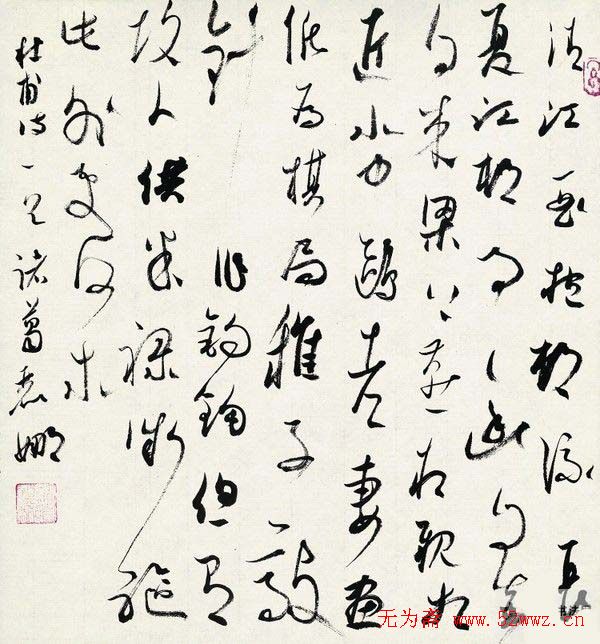 清江一曲抱村流長
夏江村事々幽自去
自来梁上燕相親相
近水中鷗老妻畫
紙為棋局稚子敲
針作钓鈎但有
故人供米禄微躯
此外更何求
杜甫诗一首诸葛娜
无为斋 www.52wwz.cn